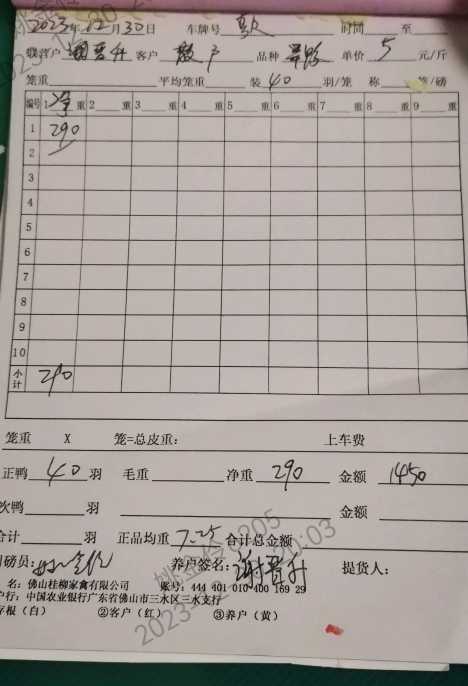 2023年12月30日 车牌号 时间 至
养户 谢晋升 客户 散户 品种 单价 5 元/斤
笼重 平均笼重 装 40 羽/笼 称 笼/磅
编号 1 净 重 2 重 3 重 4 重 5 重 6 重 7 重 8 重 9 重
1 290
2
3
4
5
6
7
8
9
10
小计 290
笼重 X 笼=总皮重: 上车费
正鸭 40 羽 毛重 净重 290 金额 1450
次鸭 羽 金额
合计 羽 正品均重 7.25 合计总金额
司磅员: 养户签名: 谢晋升 提货人:
名: 佛山桂柳家禽有限公司 账号: 444 401 010 400 169 29
户行: 中国农业银行广东省佛山市三水区三水支行
存根(白) ②客户(红) ③养户(黄)